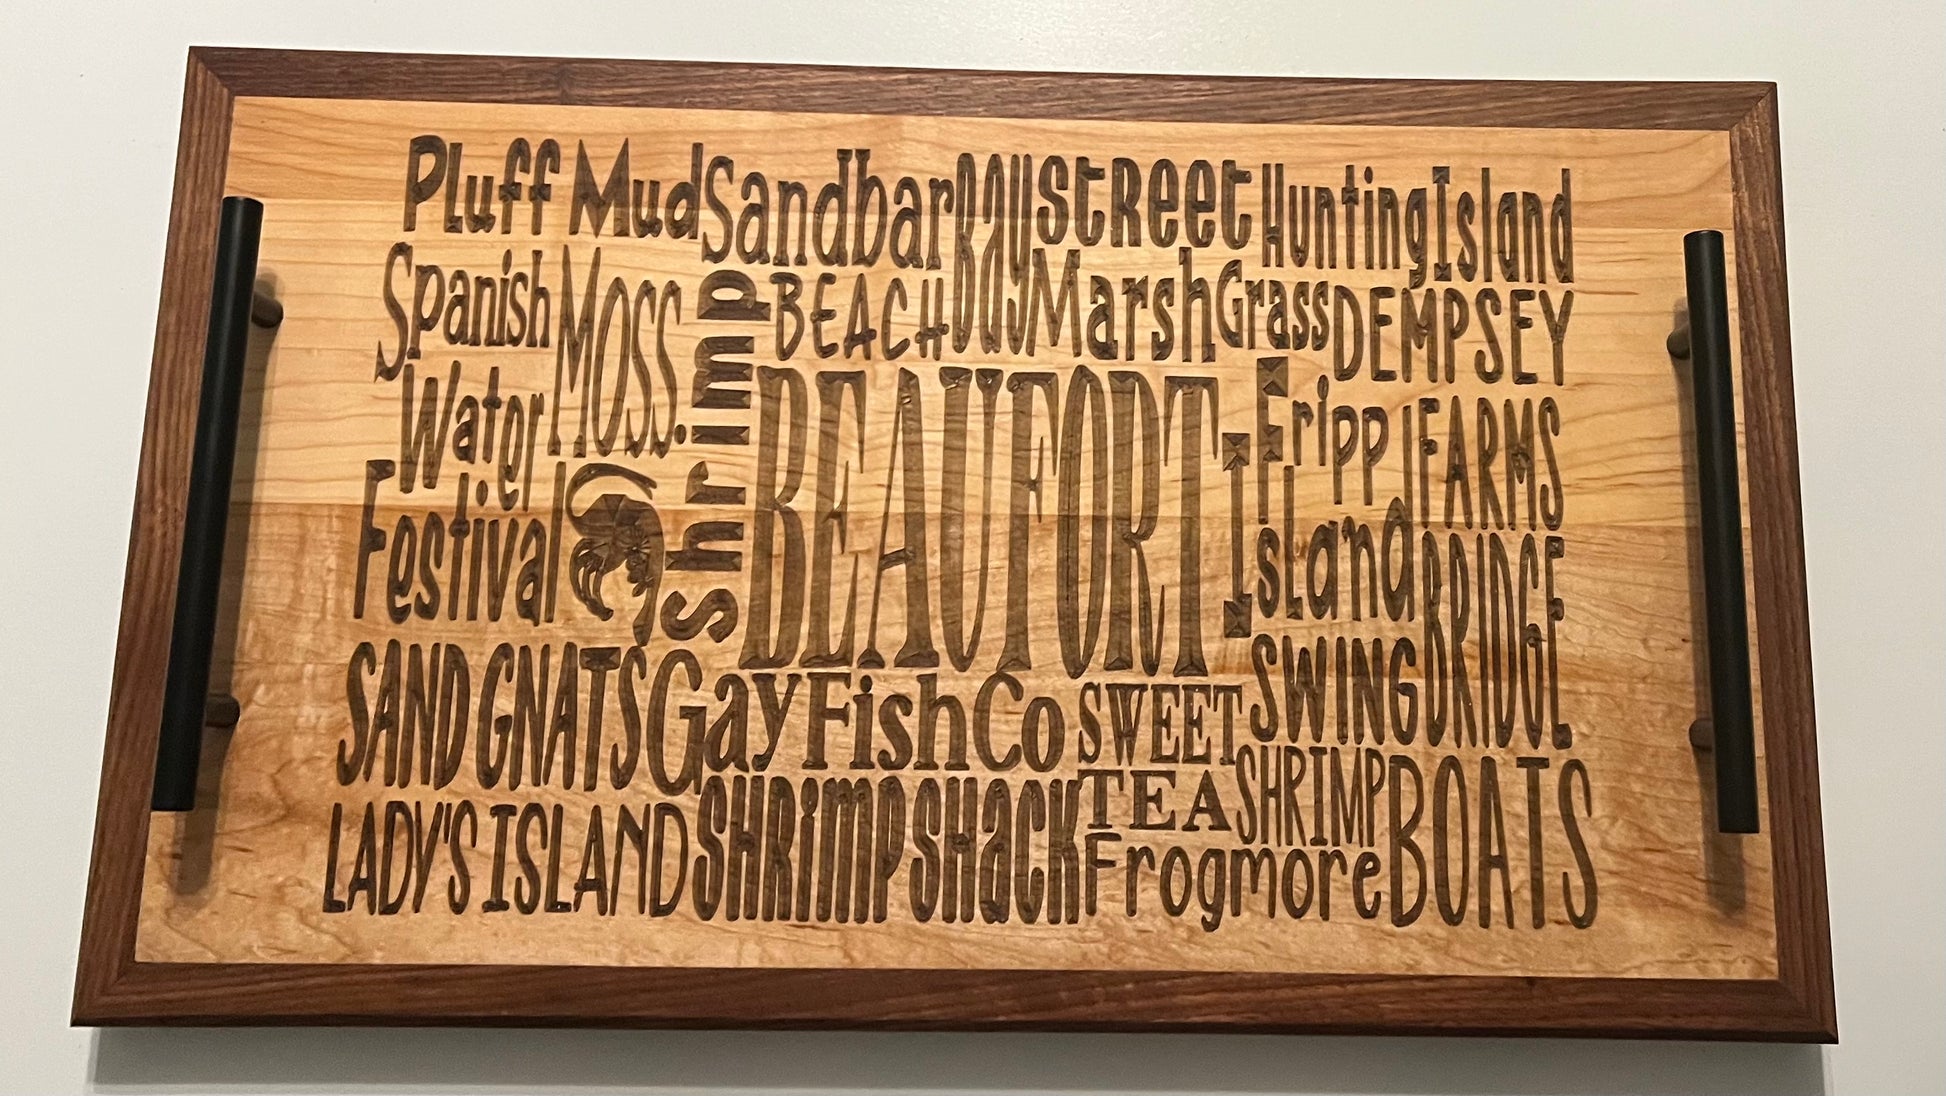 Pluff Mud
Sandbar
Bay Street
Hunting Island
Spanish Moss
shrimp
BEACH
Marsh Grass
DEMPSEY FARMS
Water Festival
BEAUFORT
Fripp Island
SWING BRIDGE
SAND GNATS
Gay Fish Co
SWEET TEA
SHRIMP BOATS
LADY'S ISLAND
SHRiMP SHaCK
Frogmore